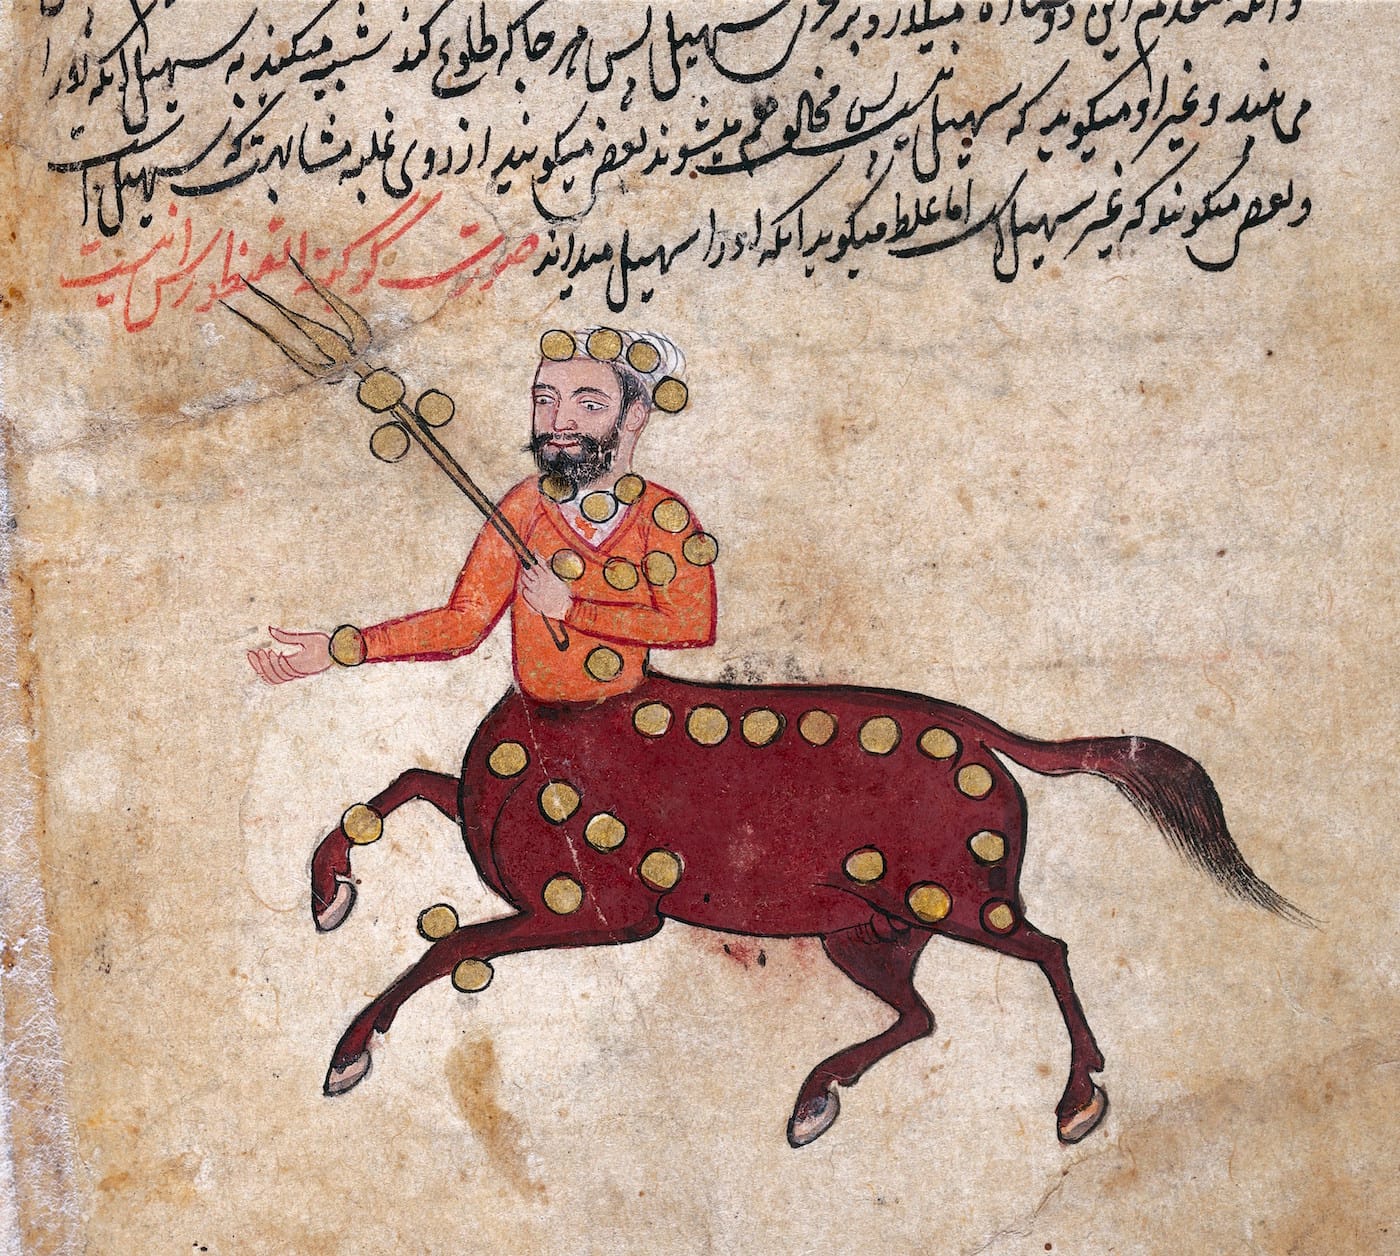 سهیل پس هر جا که طلوع کند شبیه میکنند به سهیل آنکه او را
می بینند و غیر او میگوید که سهیل نیست پس مخالف هم میشوند بعضی میگویند از روی غلبه مشابهت که سهیل است
و بعضی میگویند که غیر سهیل است اما غلط میگوید آنکه او را سهیل میداند صورت کوکبة القنطورس اینست